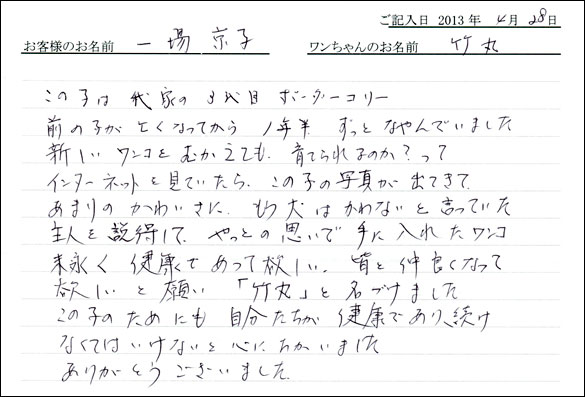 ご記入日 2013年 4月 28日
お客様のお名前 一場 京子 ワンちゃんのお名前 竹丸
この子は 我家の 3代目 ボーダーコリー
前の子が 亡くなってから 1年半 ずっと なやんでいました
新しい ワンコを むかえても、育てられるのか？って
インターネットを見ていたら、この子の写真が 出てきて、
あまりの かわいさに、もう犬は かわないと 言っていた
主人を 説得して、やっとの思いで 手に入れたワンコ
末永く 健康で あって欲しい、皆と仲良くなって
欲しいと 願い 「竹丸」と 名づけました
この子のためにも 自分たちが 健康であり、続け
なくてはいけないと 心にちかいました
ありがとう ございました。